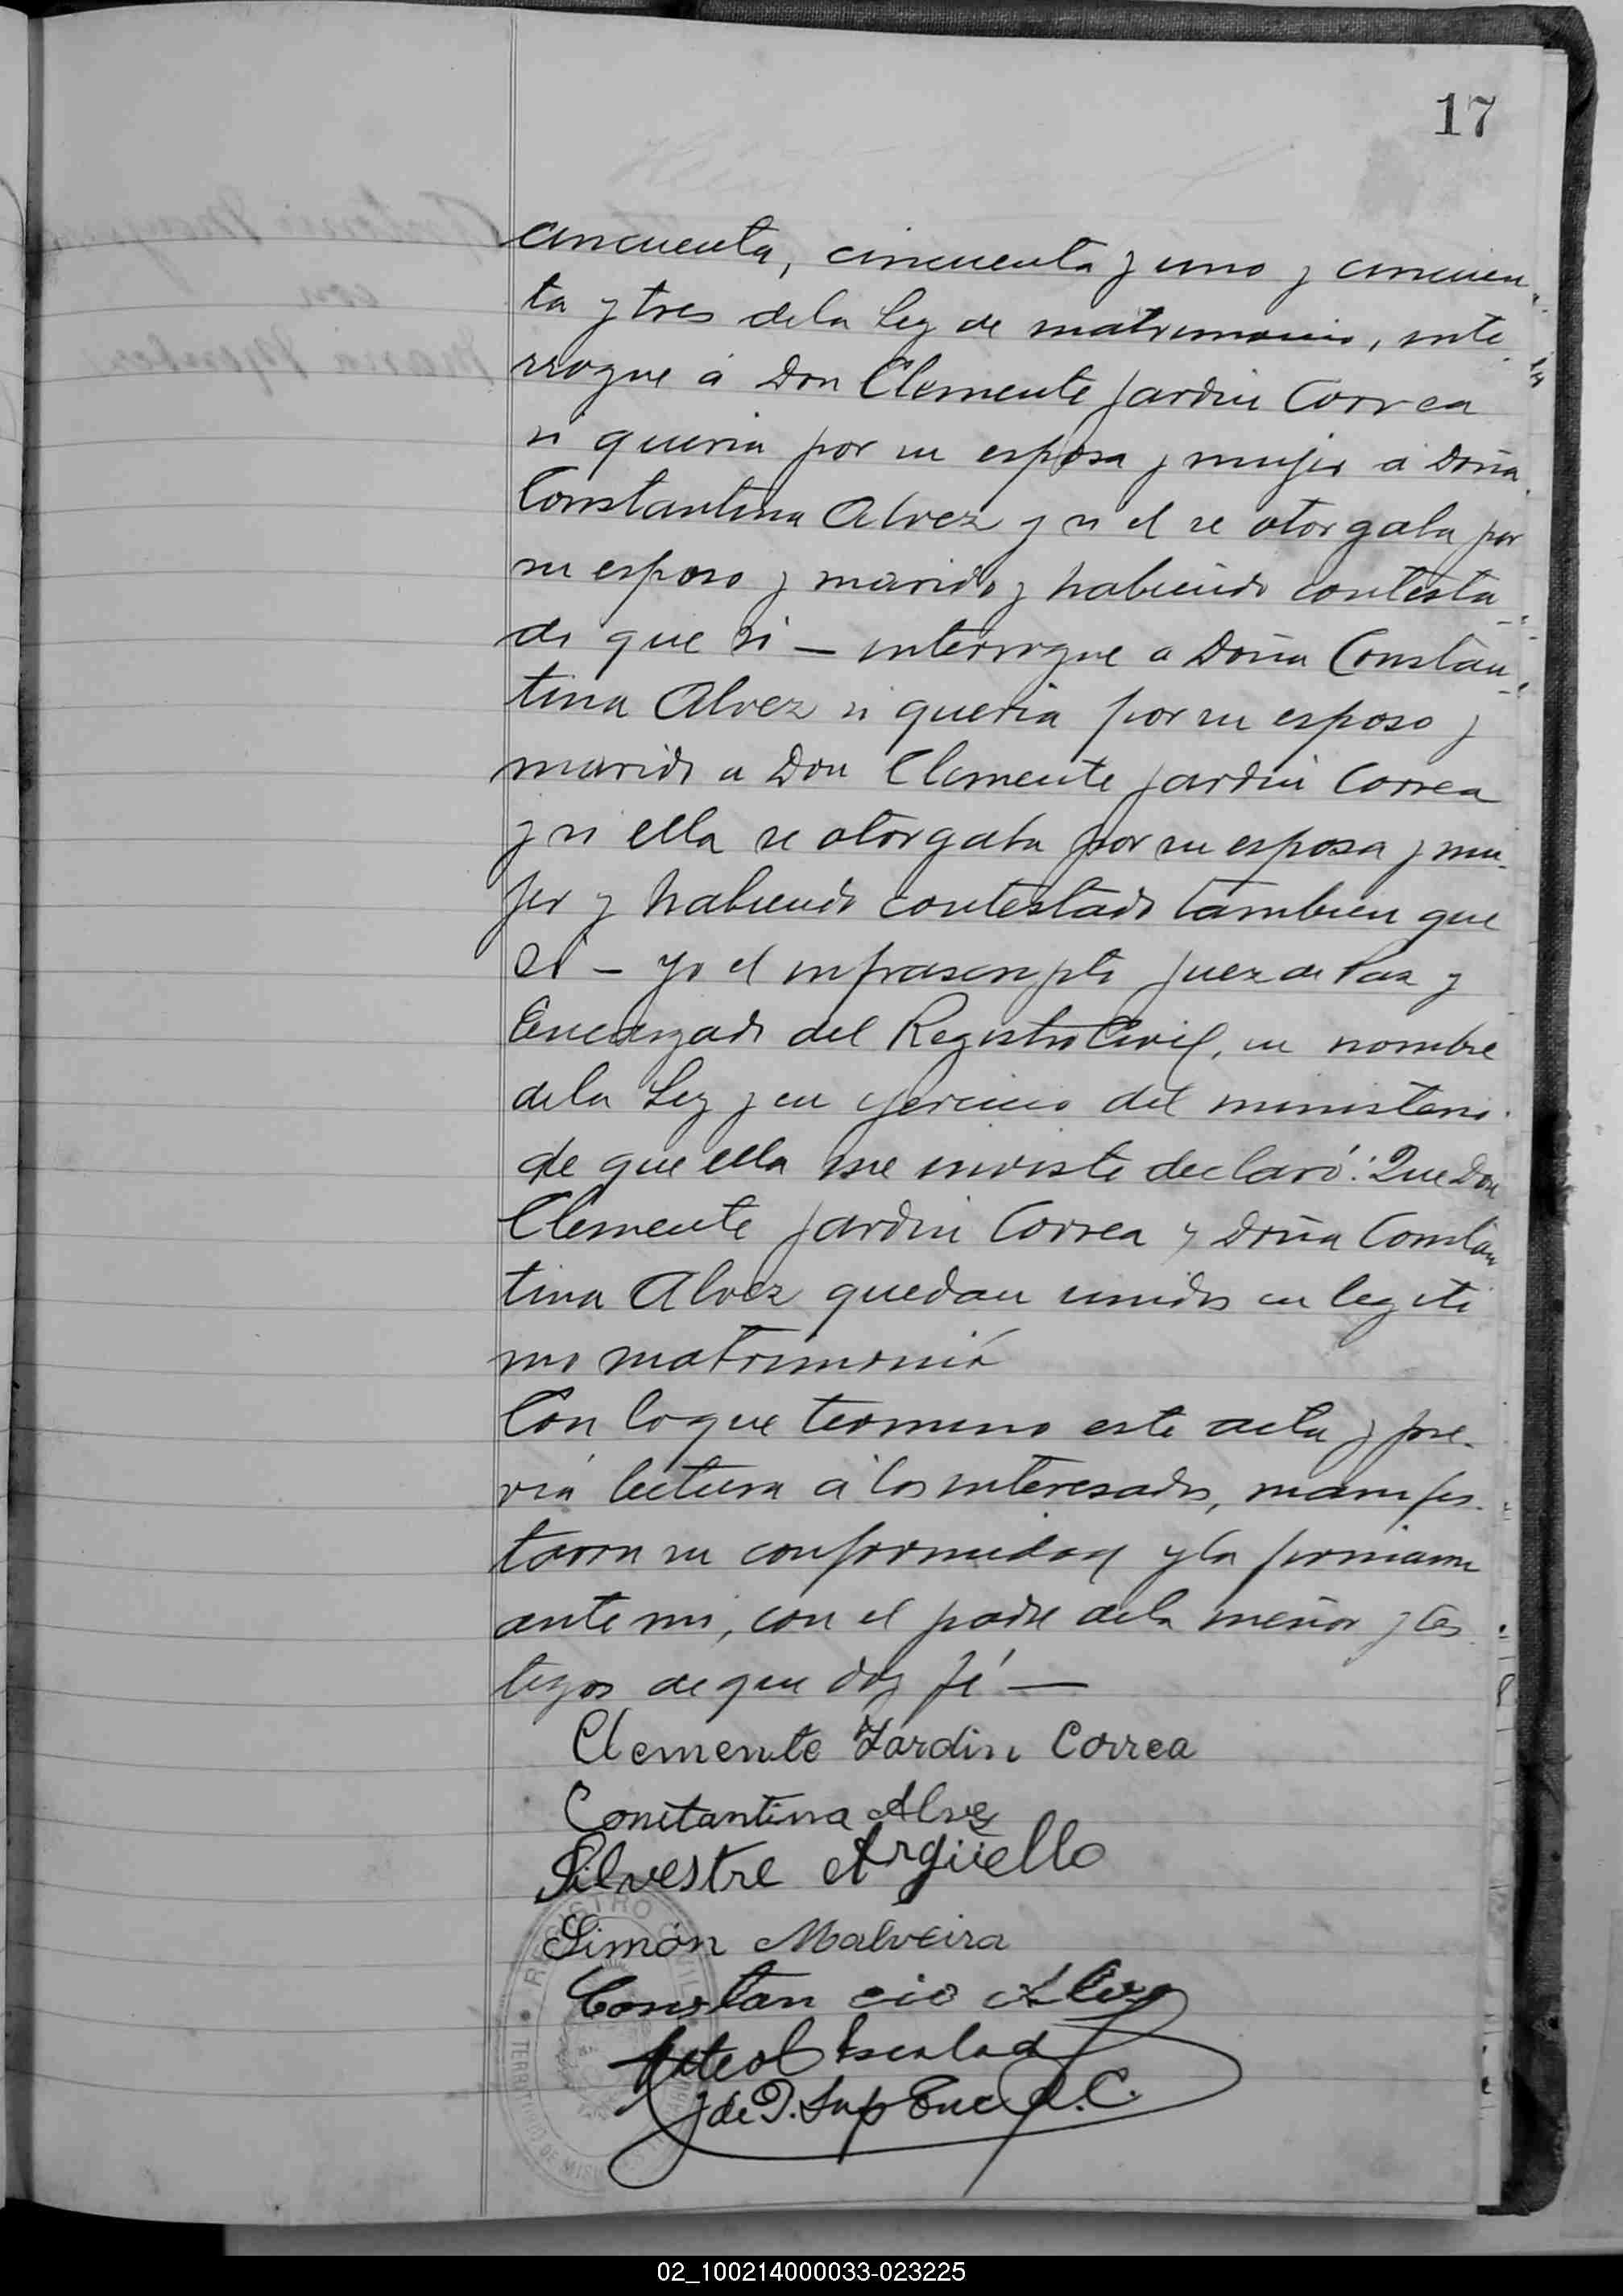 17
cincuenta, cincuenta y uno y cincuen
ta y tres de la Ley de matrimonio, inte
rrogue á Don Clemente Jardin Correa
si queria por su esposa y mujer á Doña
Constantina Alvez y si el se otorgaba por
su esposo y marido y habiendo contesta
do que si — interrogue a Doña Constan
tina Alvez si queria por su esposo y
marido a Don Clemente Jardin Correa
y si ella se otorgaba por su esposa y mu-
jer y habiendo contestado tambien que
si — Yo el infrascripto Juez de Paz y
Encargado del Registro Civil, en nombre
de la Ley y en ejercicio del ministerio
de que ella me inviste declaró: Que Don
Clemente Jardin Correa y Doña Constan
tina Alvez quedan unidos en legiti
mo matrimonio
Con lo que termino este acta y pre-
via lectura á los interesados, manifes-
taron su conformidad y la firmaron
ante mi, con el padre de la menor y tes
tigos de que doy fé —
Clemente Jardin Correa
Constantina Alvez
Silvestre Argüello
Simón Malveira
Constancio Alvez
Escalad
J de P. Sup Enc R. C.
REGISTRO CIVIL
TERRITORIO DE MISIONES
Antonio
con
Maria
02_100214000033-023225